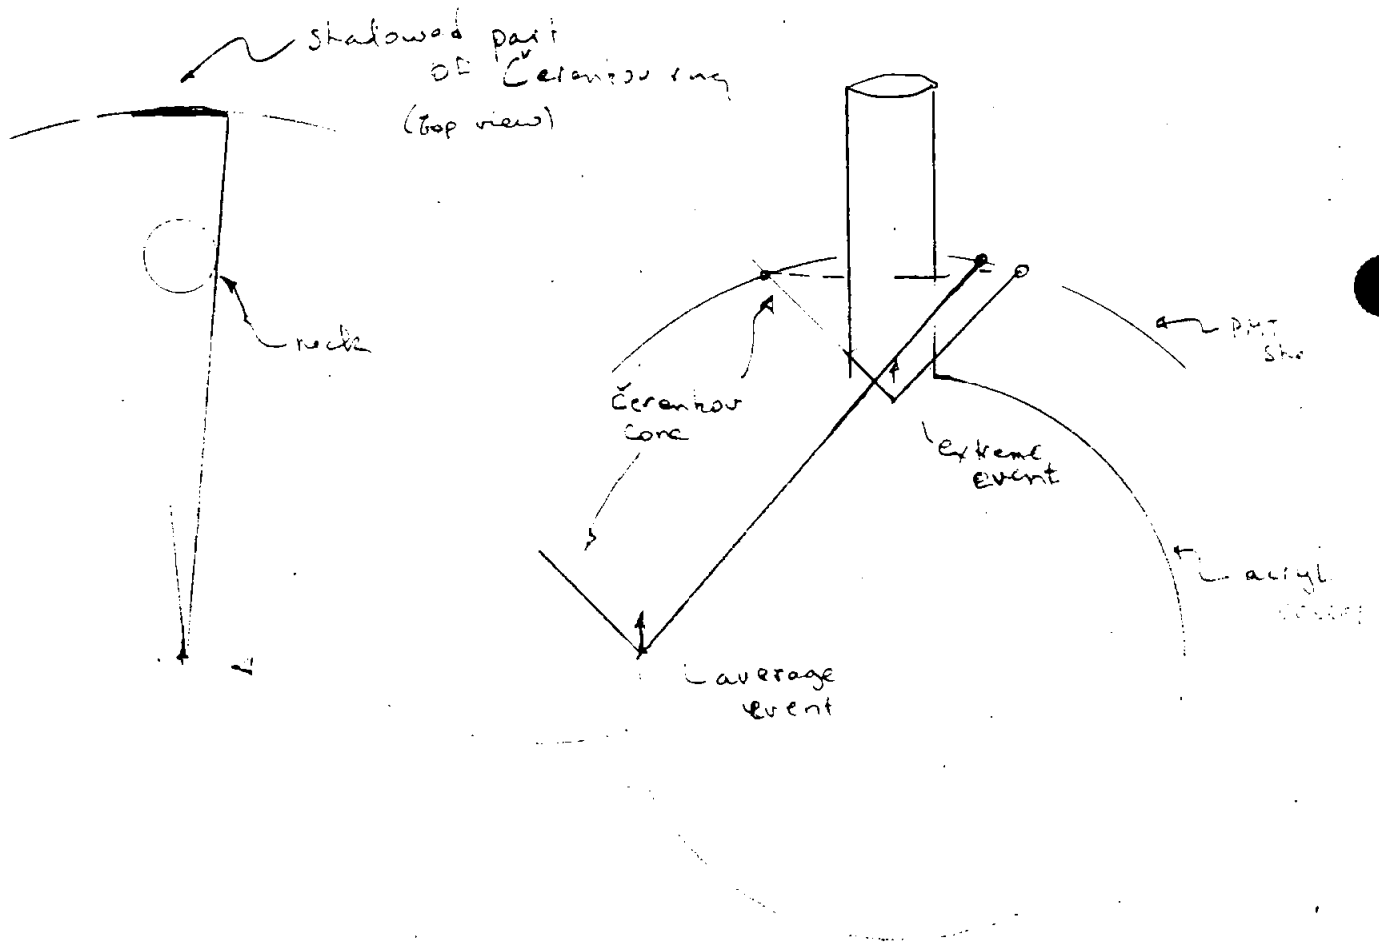 shadowed part
of Čerenkov ring
(top view)
neck
Čerenkov
cone
extreme
event
PMT
acryl
average
event